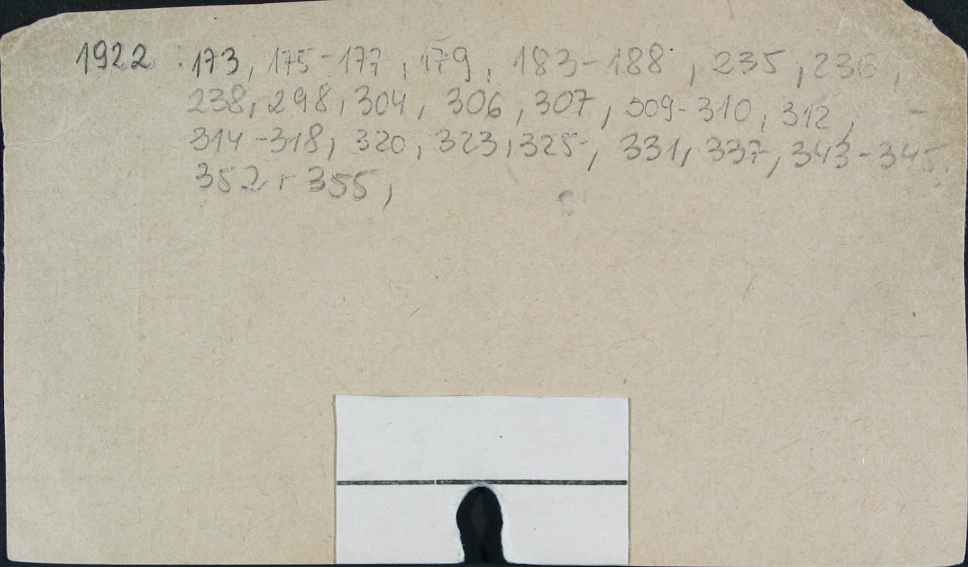 1922 : 173, 175-177, 179, 183-188, 235, 236,
238, 298, 304, 306, 307, 309-310, 312, -
314-318, 320, 323, 325-, 331, 337, 343-345,
352 r 355,